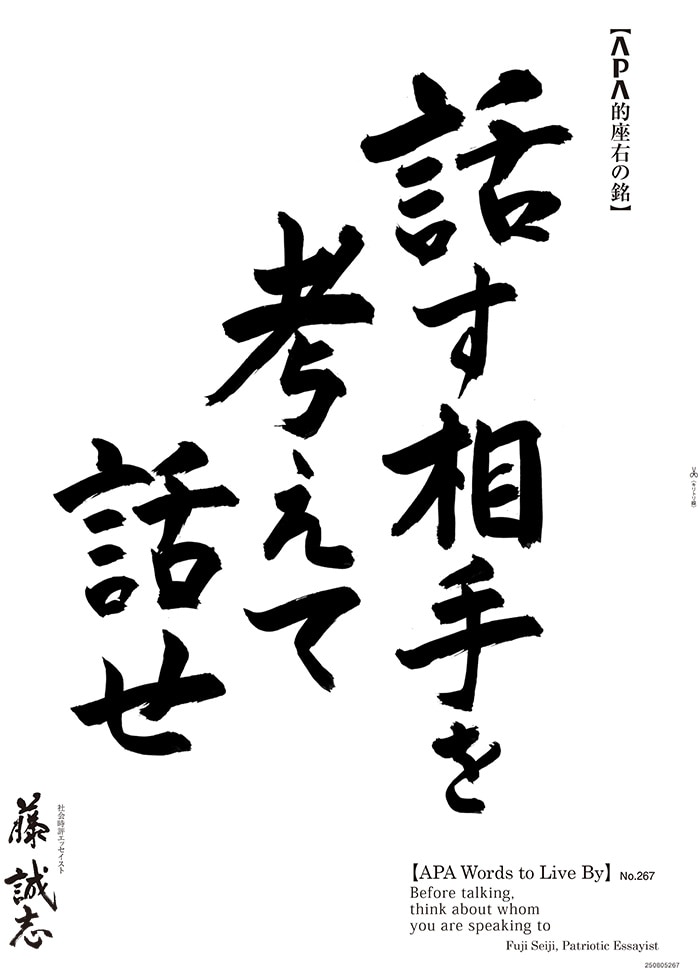 【APA的座右の銘】
話す相手を
考えて
話せ
社会時評エッセイスト
藤誠志
(キリトリ線)
【APA Words to Live By】 No.267
Before talking,
think about whom
you are speaking to
Fuji Seiji, Patriotic Essayist
250805267